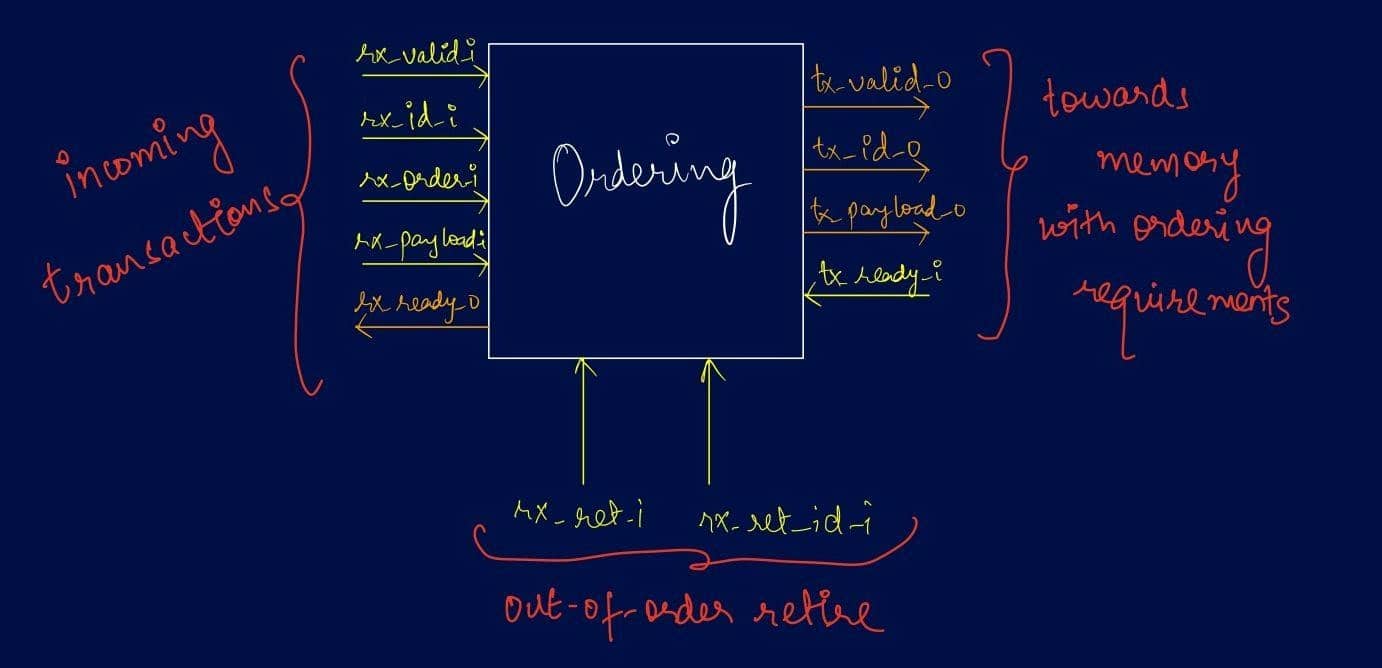 incoming
transactions
rx_valid_i
rx_id_i
rx_order_i
rx_payload_i
rx_ready_o
Ordering
tx_valid_o
tx_id_o
tx_payload_o
tx_ready_i
towards
memory
with ordering
requirements
rx_ret_i
rx_ret_id_i
out-of-order retire